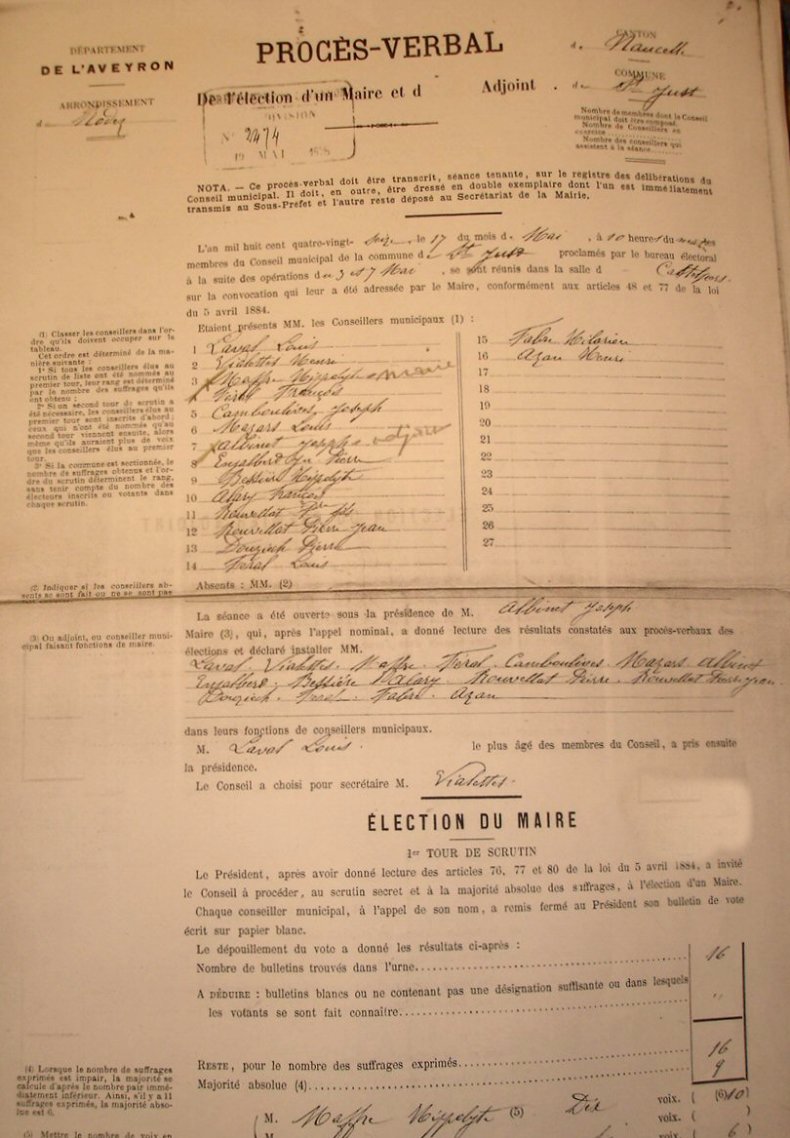 DÉPARTEMENT
DE L'AVEYRON
ARRONDISSEMENT
d Rodez
PROCÈS-VERBAL
De l'élection d'un Maire et d Adjoint.
DIVISION
N° 2474
19 MAI
CANTON
de Naucelle
COMMUNE
de St Just
Nombre de membres dont le Conseil
municipal doit être composé.
Nombre de Conseillers en
exercice
Nombre des conseillers qui
assistent à la séance
NOTA. — Ce procès-verbal doit être transcrit, séance tenante, sur le registre des délibérations du
Conseil municipal. Il doit, en outre, être dressé en double exemplaire dont l'un est immédiatement
transmis au Sous-Préfet et l'autre reste déposé au Secrétariat de la Mairie.
L'an mil huit cent quatre-vingt- seize, le 17 du mois de Mai, à 10 heures du
membres du Conseil municipal de la commune de St Just proclamés par le bureau électoral
à la suite des opérations du 3 et 7 Mai, se sont réunis dans la salle d
sur la convocation qui leur a été adressée par le Maire, conformément aux articles 48 et 77 de la loi
du 5 avril 1884.
Etaient présents MM. les Conseillers municipaux (1) :
1 Laval Louis
2 Vialettes Henri
3 Maffre Hippolyte maire
4 Féral François
5 Camboulives Joseph
6 Mazars Louis
7 Albinet Joseph adjoint
8 Enjalbert Pierre
9 Bessière Hippolyte
10 Alary François
11 Rouvellat Pre fils
12 Rouvellat Pierre Jean
13 Douziech Pierre
14 Féral Louis
15 Fabre Hilarien
16 Azan Henri
17
18
19
20
21
22
23
24
25
26
27
(1) Classer les conseillers dans l'or-
dre qu'ils doivent occuper sur le
tableau.
Cet ordre est déterminé de la ma-
nière suivante :
1° Si tous les conseillers élus au
scrutin de liste ont été nommés au
premier tour, leur rang est déterminé
par le nombre des suffrages qu'ils
ont obtenu ;
2° Si un second tour de scrutin a
été nécessaire, les conseillers élus au
premier tour sont inscrits d'abord ;
ceux qui n'ont été nommés qu'au
second tour viennent ensuite, alors
même qu'ils auraient plus de voix
que les conseillers élus au premier
tour.
3° Si la commune est sectionnée, le
nombre de suffrages obtenus et l'or-
dre du scrutin déterminent le rang,
sans tenir compte du nombre des
électeurs inscrits ou votants dans
chaque scrutin.
(2) Indiquer si les conseillers ab-
sents se sont fait ou ne se sont pas
Absents : MM. (2)
La séance a été ouverte sous la présidence de M. Albinet Joseph
(3) Ou adjoint, ou conseiller muni-
cipal faisant fonctions de maire.
Maire (3), qui, après l'appel nominal, a donné lecture des résultats constatés aux procès-verbaux des
élections et déclaré installer MM.
Laval. Vialettes. Maffre. Féral. Camboulives. Mazars. Albinet
Enjalbert. Bessière. Alary. Rouvellat Pierre. Rouvellat Pierre Jean.
Douziech. Féral. Fabre. Azan
dans leurs fonctions de conseillers municipaux.
M. Laval Louis. le plus âgé des membres du Conseil, a pris ensuite
la présidence.
Le Conseil a choisi pour secrétaire M. Vialettes.
ÉLECTION DU MAIRE
1er TOUR DE SCRUTIN
Le Président, après avoir donné lecture des articles 76, 77 et 80 de la loi du 5 avril 1884, a invité
le Conseil à procéder, au scrutin secret et à la majorité absolue des suffrages, à l'élection d'un Maire.
Chaque conseiller municipal, à l'appel de son nom, a remis fermé au Président son bulletin de vote
écrit sur papier blanc.
Le dépouillement du vote a donné les résultats ci-après :
Nombre de bulletins trouvés dans l'urne 16
A DÉDUIRE : bulletins blancs ou ne contenant pas une désignation suffisante ou dans lesquels
les votants se sont fait connaître "
RESTE, pour le nombre des suffrages exprimés 16
Majorité absolue (4) 9
(4) Lorsque le nombre de suffrages
exprimés est impair, la majorité se
calcule d'après le nombre pair immé-
diatement inférieur. Ainsi, s'il y a 11
suffrages exprimés, la majorité abso-
lue est 6.
M. Maffre Hippolyte (5) Dix voix. ( (6) 10 )
voix. ( )
(5) Mettre le nombre de voix en
M. voix. ( 6 )